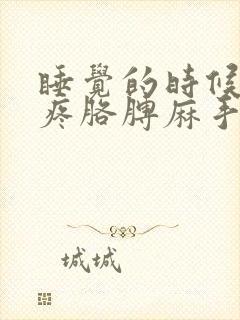 睡覺的時候
疼胳脾麻手
城城